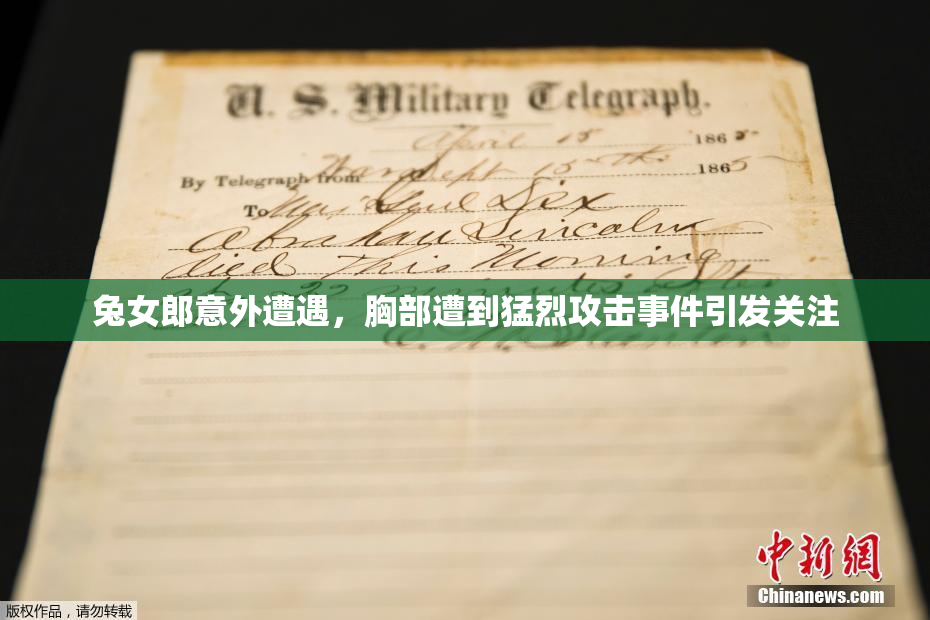 U. S. Military Telegraph.
April 15 1865
By Telegraph from War Dept 15th 1865
To Maj Genl Dix
Abraham Lincoln
died This Morning
22 minutes after
兔女郎意外遭遇，胸部遭到猛烈攻击事件引发关注
E. M. Stanton
中新网
Chinanews.com
版权作品，请勿转载